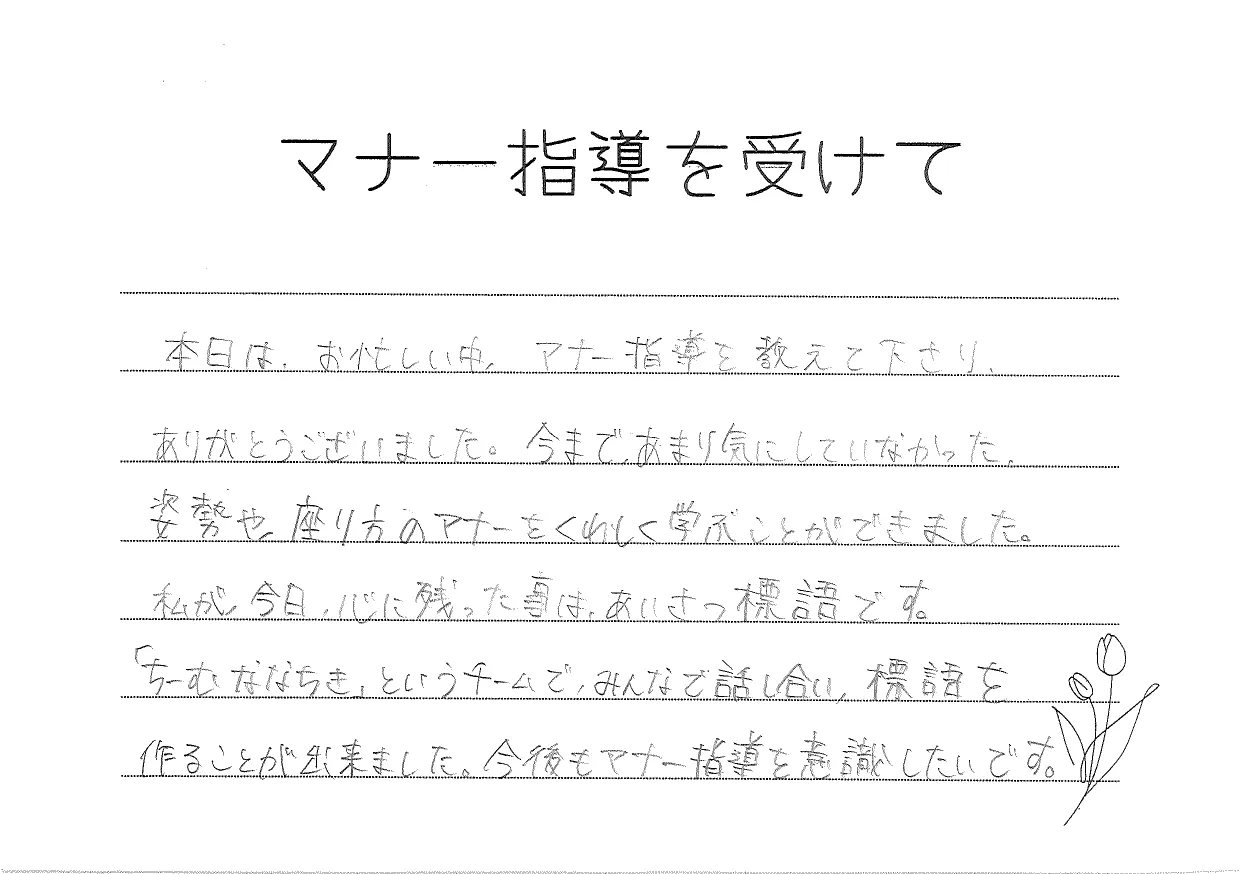 マナー指導を受けて
本日は、お忙しい中、マナー指導を教えて下さり、
ありがとうございました。今まで、あまり気にしていなかった、
姿勢や、座り方のマナーをくわしく学ぶことができました。
私が、今日、心に残った事は、あいさつ標語です。
「ちーむななちき」というチームで、みんなで話し合い、標語を
作ることが出来ました。今後もマナー指導を意識したいです。